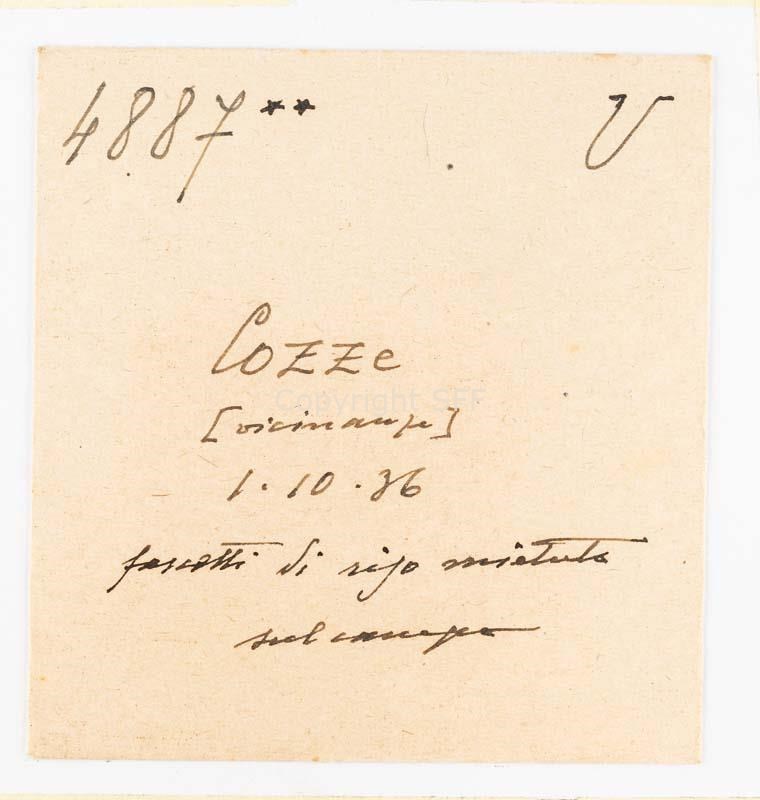 4887** V
Cozze
[vicinanze]
1·10·36
fascetti di riso mietuto
sul campo
Copyright SFF